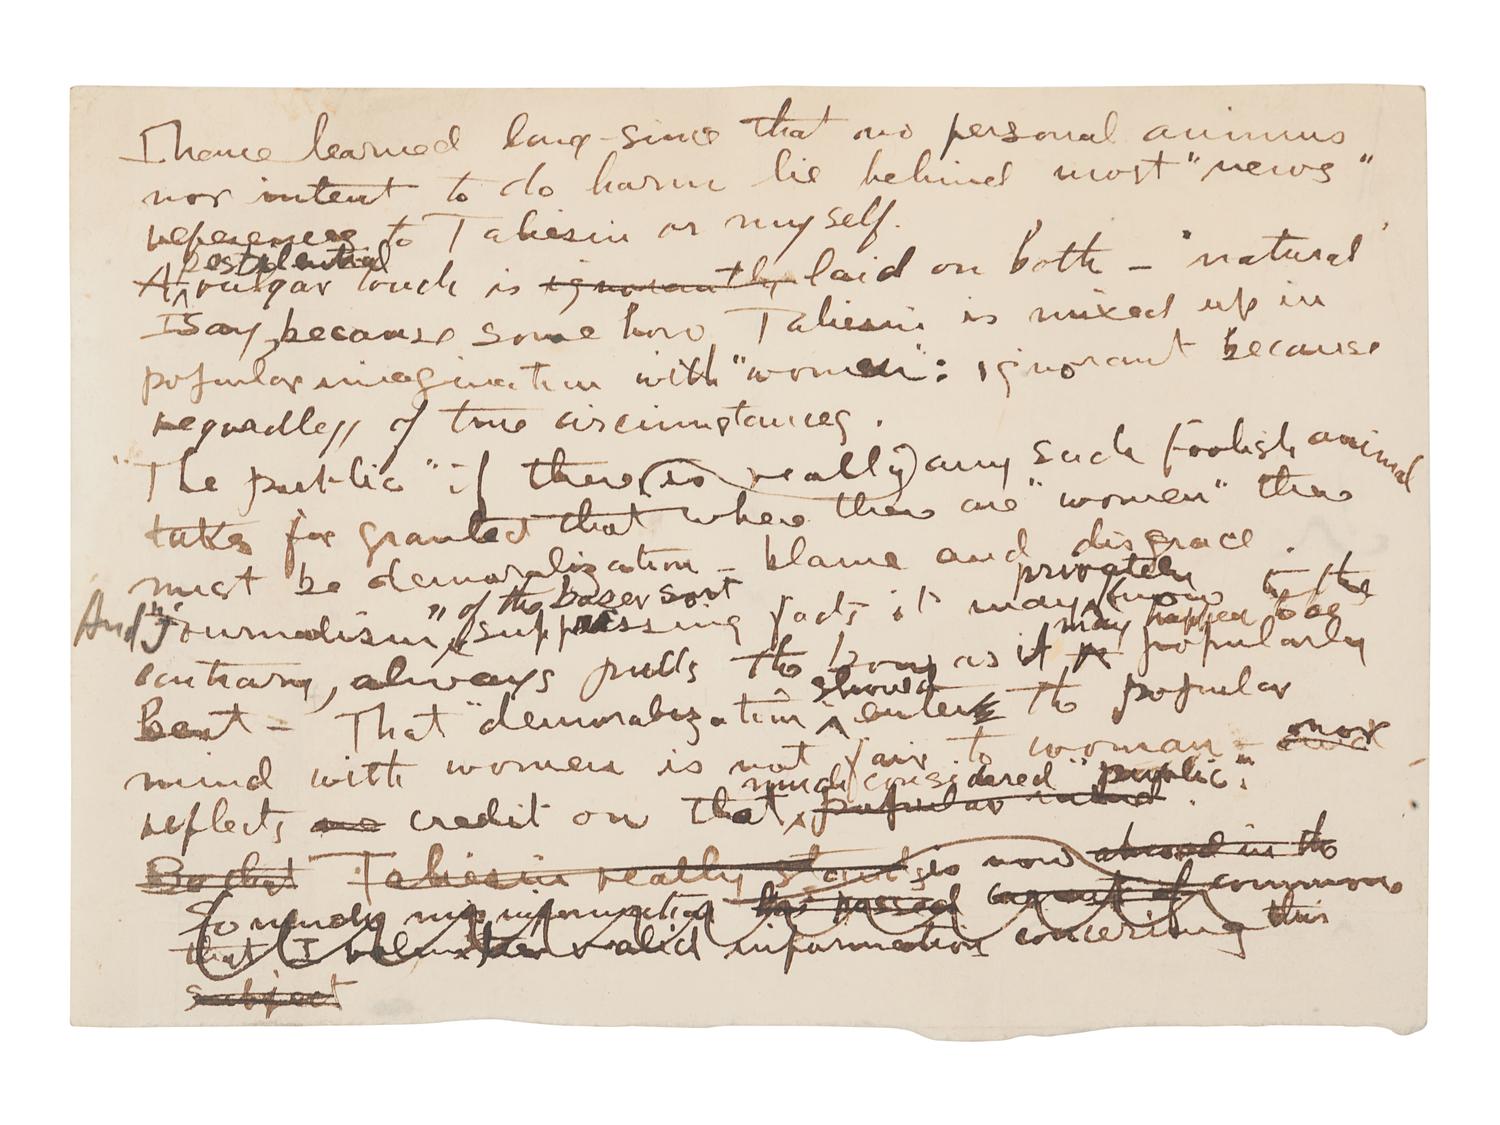 I have learned long-since that no personal animus
nor intent to do harm lie behind most "news"
references to Taliesin or myself.
pestilential
A vulgar touch is ignorantly laid on both – "natural"
I say, because some how Taliesin is mixed up in
popular imagination with "women": ignorant because
regardless of true circumstances.
"The public" if there (is really) any such foolish animal
takes for granted that where there are "women" there
must be demoralization – blame and disgrace.
of the baser sort privately
And "journalism", suppressing facts it may know to the
may happen to be
contrary, always pulls the bow as it popularly
Bent – That "demoralization" should enter the popular
mind with women is not fair to woman – nor
much considered "public".
reflects credit on that popular mind.
So that Taliesin really stands is now abroad in the
So much misinformation has passed current common
that I volunteer valid information concerning this
subject